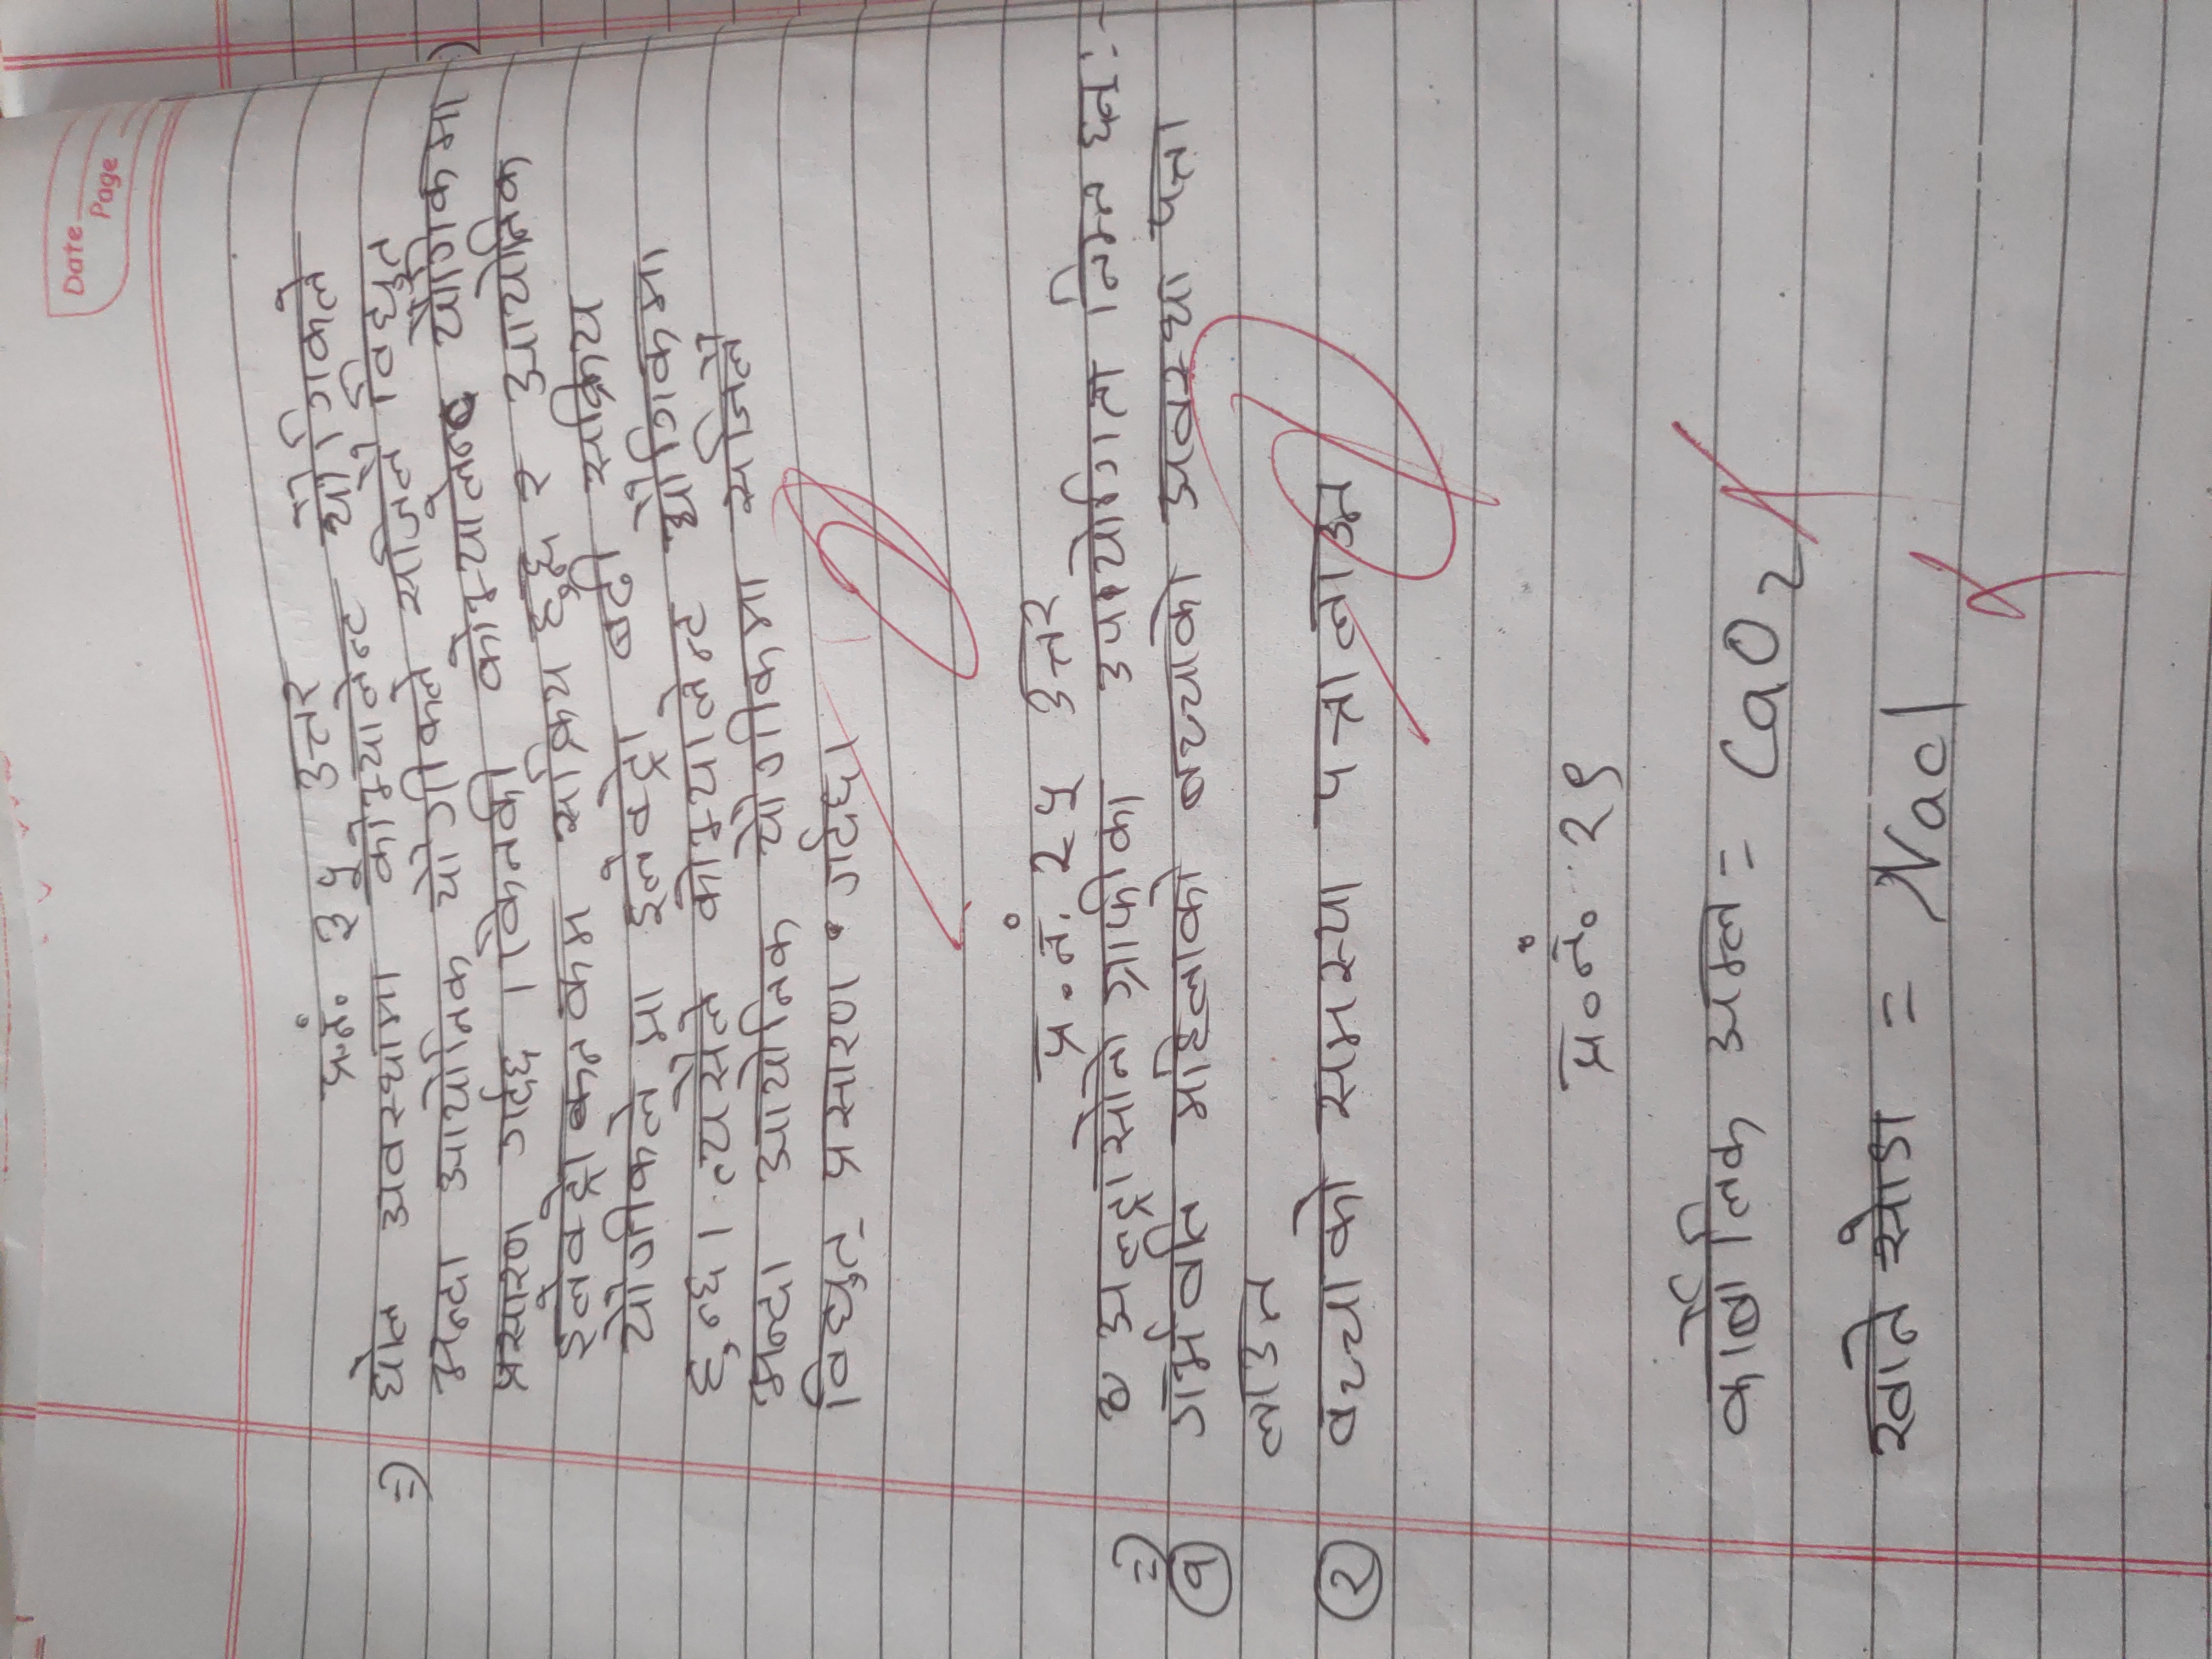 Date
Page
प्र.नं. ३५ उत्तर
=) घोल अवस्थामा कोभ्यालेन्ट यौगिकले
भन्दा आयोनिक यौगीकले सजिलै विद्युत
प्रसारण गर्दछ । किनकी कोभ्यालेन्ट यौगिकमा
इलेक्ट्रो कम सक्रिय हुन्छ र आयोनिक
यौगीकले मा इलेक्ट्रो बढी सक्रिय
हुन्छ। त्यसैले कोभ्यालेन्ट यौगिकमा
भन्दा आयोनिक यौगीकमा सजिलै
विद्युत प्रसारण गर्दछ।
प्र.नं. २५ उत्तर
=) अल्ट्रासोनोग्राफीका उपयोगिता निम्न छन् :-
१ गर्भवति महिलाको बच्चाको अवस्था पत्ता
लाउन
२ बच्चाको समस्या पत्ता लाउन
प्र.नं. २९
कार्बोलिक अम्ल = CaO2
खाने सोडा = Nacl